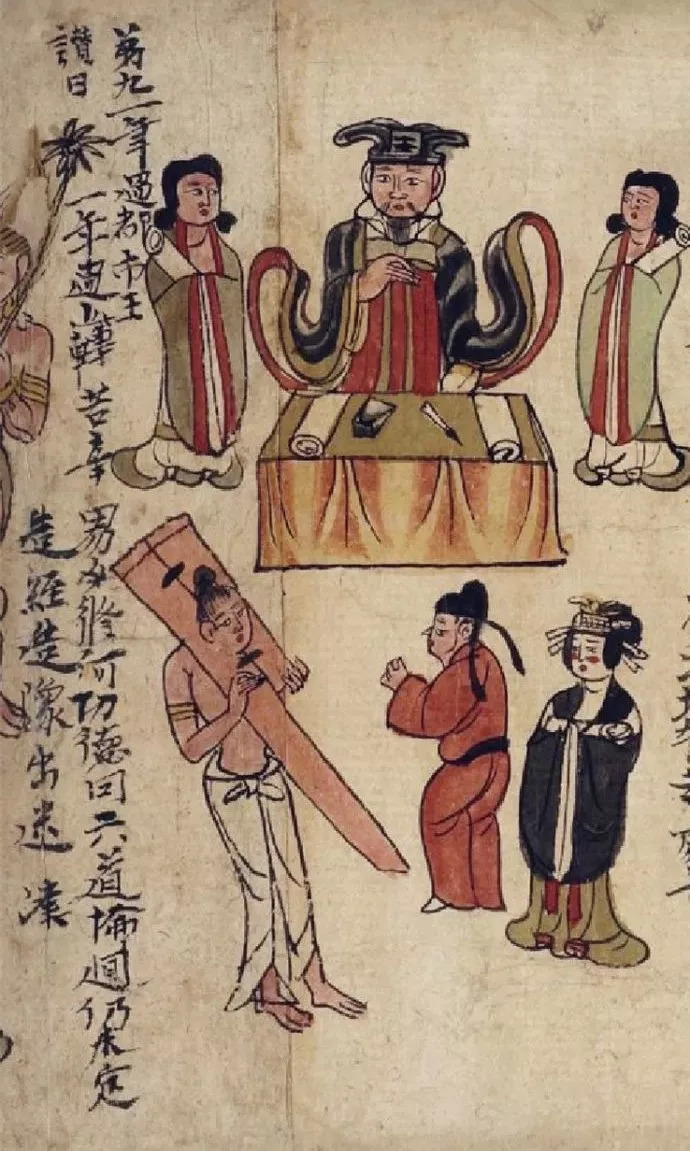 弟九一年過都市王
讚曰
一年過此轉苦辛
男女修何功德因六道輪迴仍未定
造經造像出迷津
王